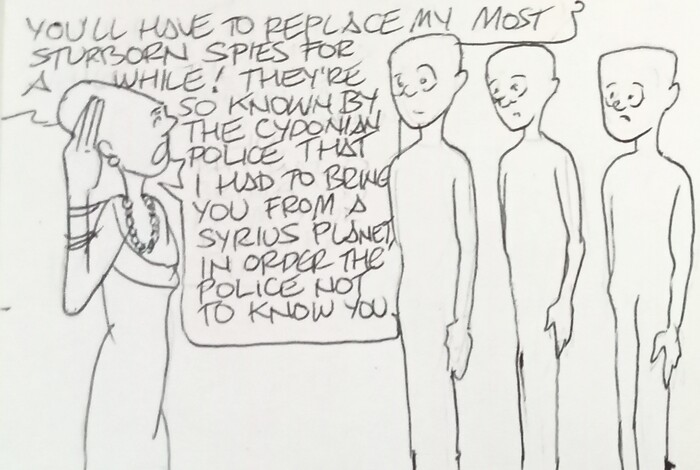 YOU'LL HAVE TO REPLACE MY MOST
STURBORN SPIES FOR
A WHILE! THEY'RE
SO KNOWN BY
THE CYDONIAN
POLICE THAT
I HAD TO BRING
YOU FROM A
SYRIUS PLANET,
IN ORDER THE
POLICE NOT
TO KNOW YOU.